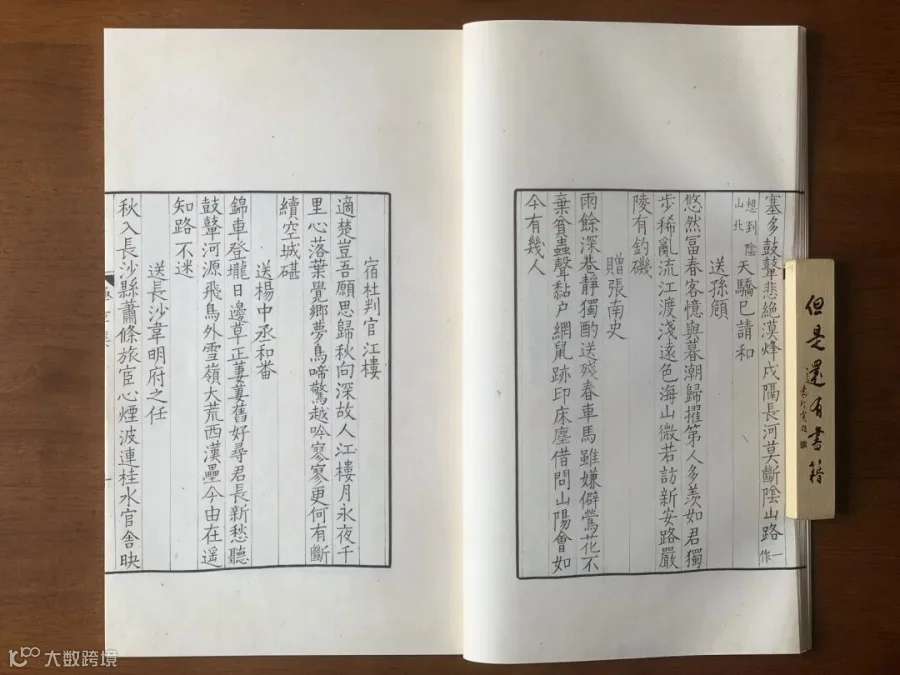 塞多鼓鼙悲絕漠烽戍隔長河莫斷陰山路一作
想到陰山北天驕已請和
送孫頎
悠然富春客憶與暮潮歸擢第人多羨如君獨
步稀亂流江渡淺遠色海山微若訪新安路嚴
陵有釣磯
贈張南史
雨餘深巷靜獨酌送殘春車馬雖嫌僻鶯花不
棄貧蟲聲黏户網鼠跡印床塵借問山陽會如
今有幾人
宿杜判官江樓
適楚豈吾願思歸秋向深故人江樓月永夜千
里心落葉覺鄉夢鳥啼驚越吟寥寥更何有斷
續空城碪
送楊中丞和番
錦車登壠日邊草正萋萋舊好尋君長新愁聽
鼓鼙河源飛鳥外雪嶺大荒西漢壘今由在遙
知路不迷
送長沙韋明府之任
秋入長沙縣蕭條旅宦心煙波連桂水官舍映
但是還有書籍
大数跨境